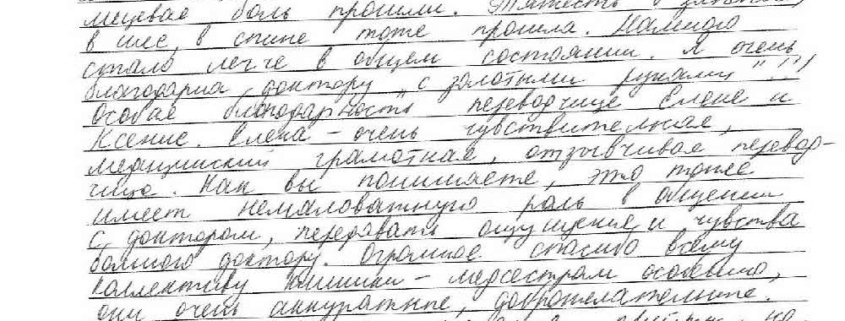 мцевая боль прошли. Тяжесть в затылке,
в шее, в спине тоже прошла. Намного
стало легче в общем состоянии. Я очень
благодарна доктору "с золотыми руками"!!!
Особая благодарность переводчице Елене и
Ксение. Елена – очень чувствительная,
медицинский грамотная, отзывчивая перевод-
чица. Как вы понимаете, это тоже
имеет немаловажную роль в общении
с доктором, передавать ощущения и чувства
больного доктору. Огромное спасибо всему
коллективу клиники – медсестрам особенно,
они очень аккуратные, доброжелательные.